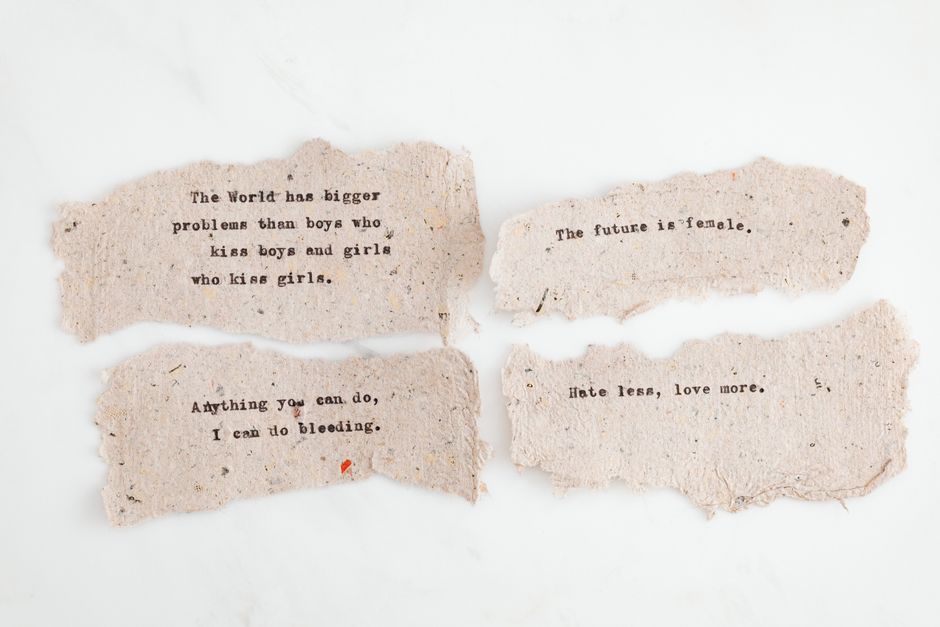 The World has bigger
problems than boys who
kiss boys and girls
who kiss girls.
The future is female.
Anything you can do,
I can do bleeding.
Hate less, love more.